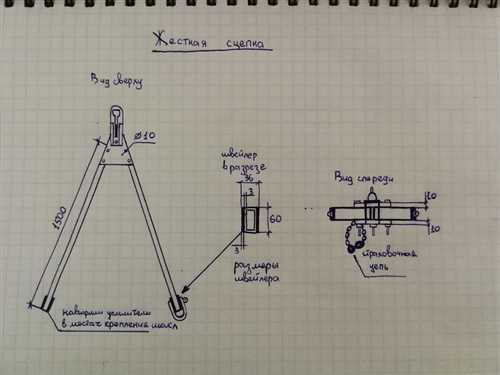 Жесткая сцепка
Вид сверху
ø10
1500
наварить усилители
в местах крепления шакл
швейлер
в разрезе
36
3
60
3
размеры
швейлера
Вид спереди
10
10
страховочная
цепь